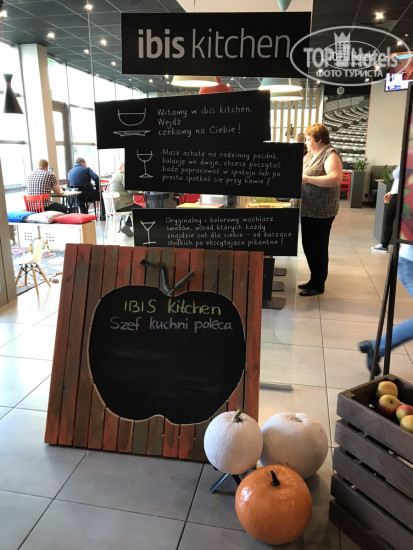 ibis kitchen
TOPHotels
ФОТО ТУРИСТА
Witamy w ibis kitchen.
Wejdź
czekamy na Ciebie!
Masz ochotę na rodzinny posiłek,
kolację we dwoje, chcesz poczytać
bądź popracować w spokoju lub po
prostu spotkać się przy kawie?
Oryginalny i kolorowy wachlarz
smaków, wśród których każdy
znajdzie coś dla siebie - od kusząco
słodkich po ekscytująco pikantne!
IBIS kitchen
Szef kuchni poleca